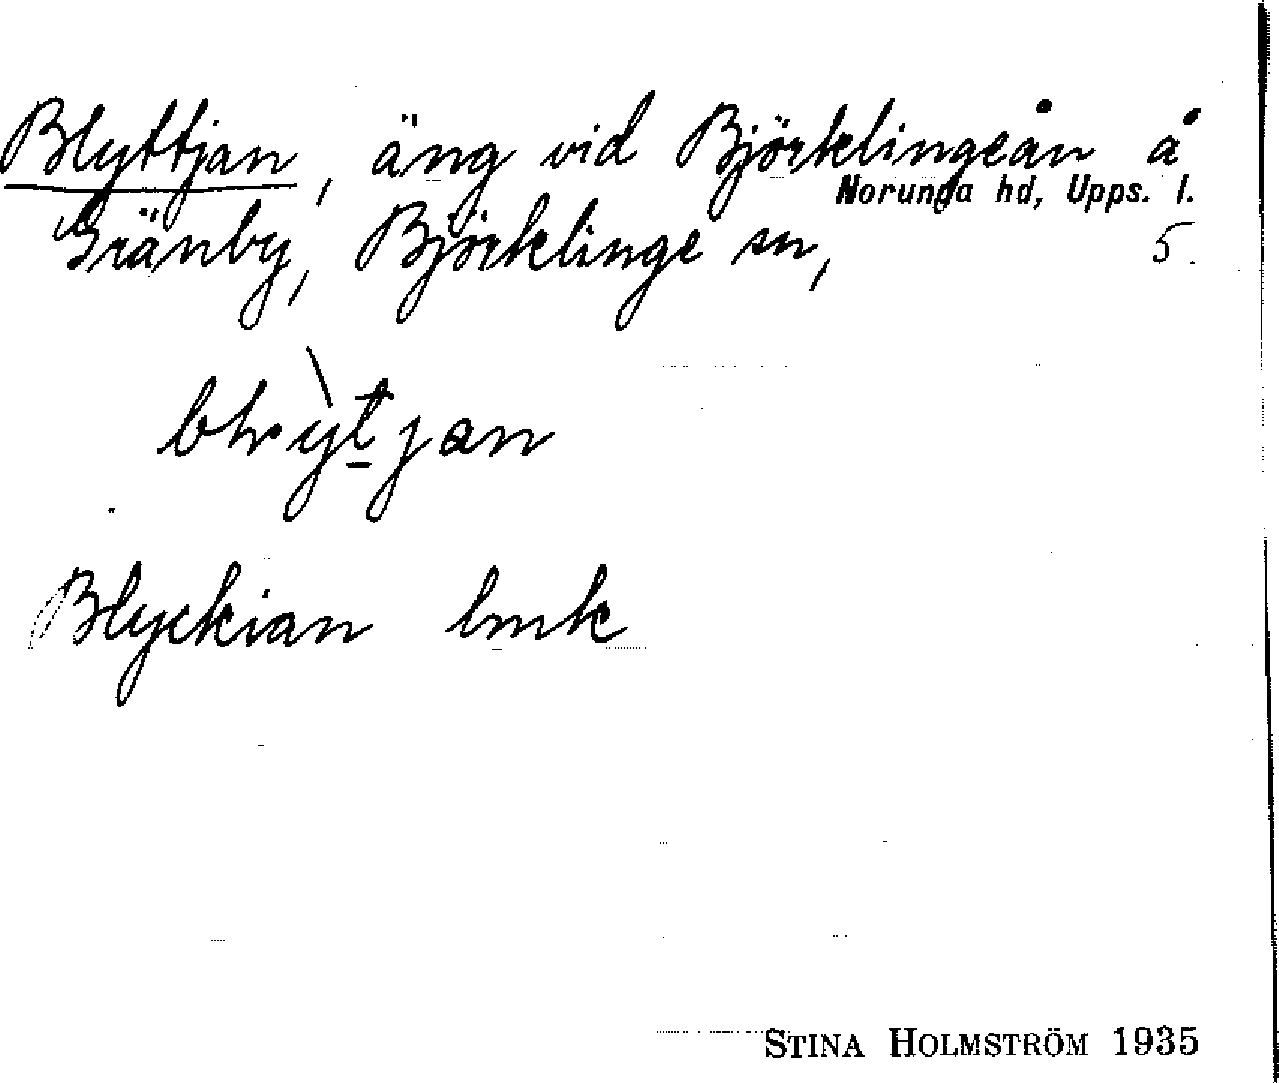 Blyttjan, äng vid Björklingeån å
Norunda hd, Upps. l.
Gränby, Björklinge sn, 5.
Blyckian lmk
STINA HOLMSTRÖM 1935